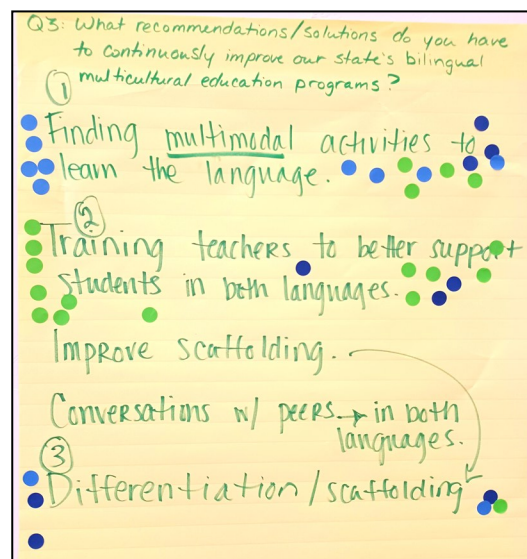 Q3: What recommendations/solutions do you have
to continuously improve our state's bilingual
multicultural education programs?
1
Finding multimodal activities to
learn the language.
2
Training teachers to better support
students in both languages.
Improve scaffolding.
Conversations w/ peers → in both
languages.
3
Differentiation/scaffolding